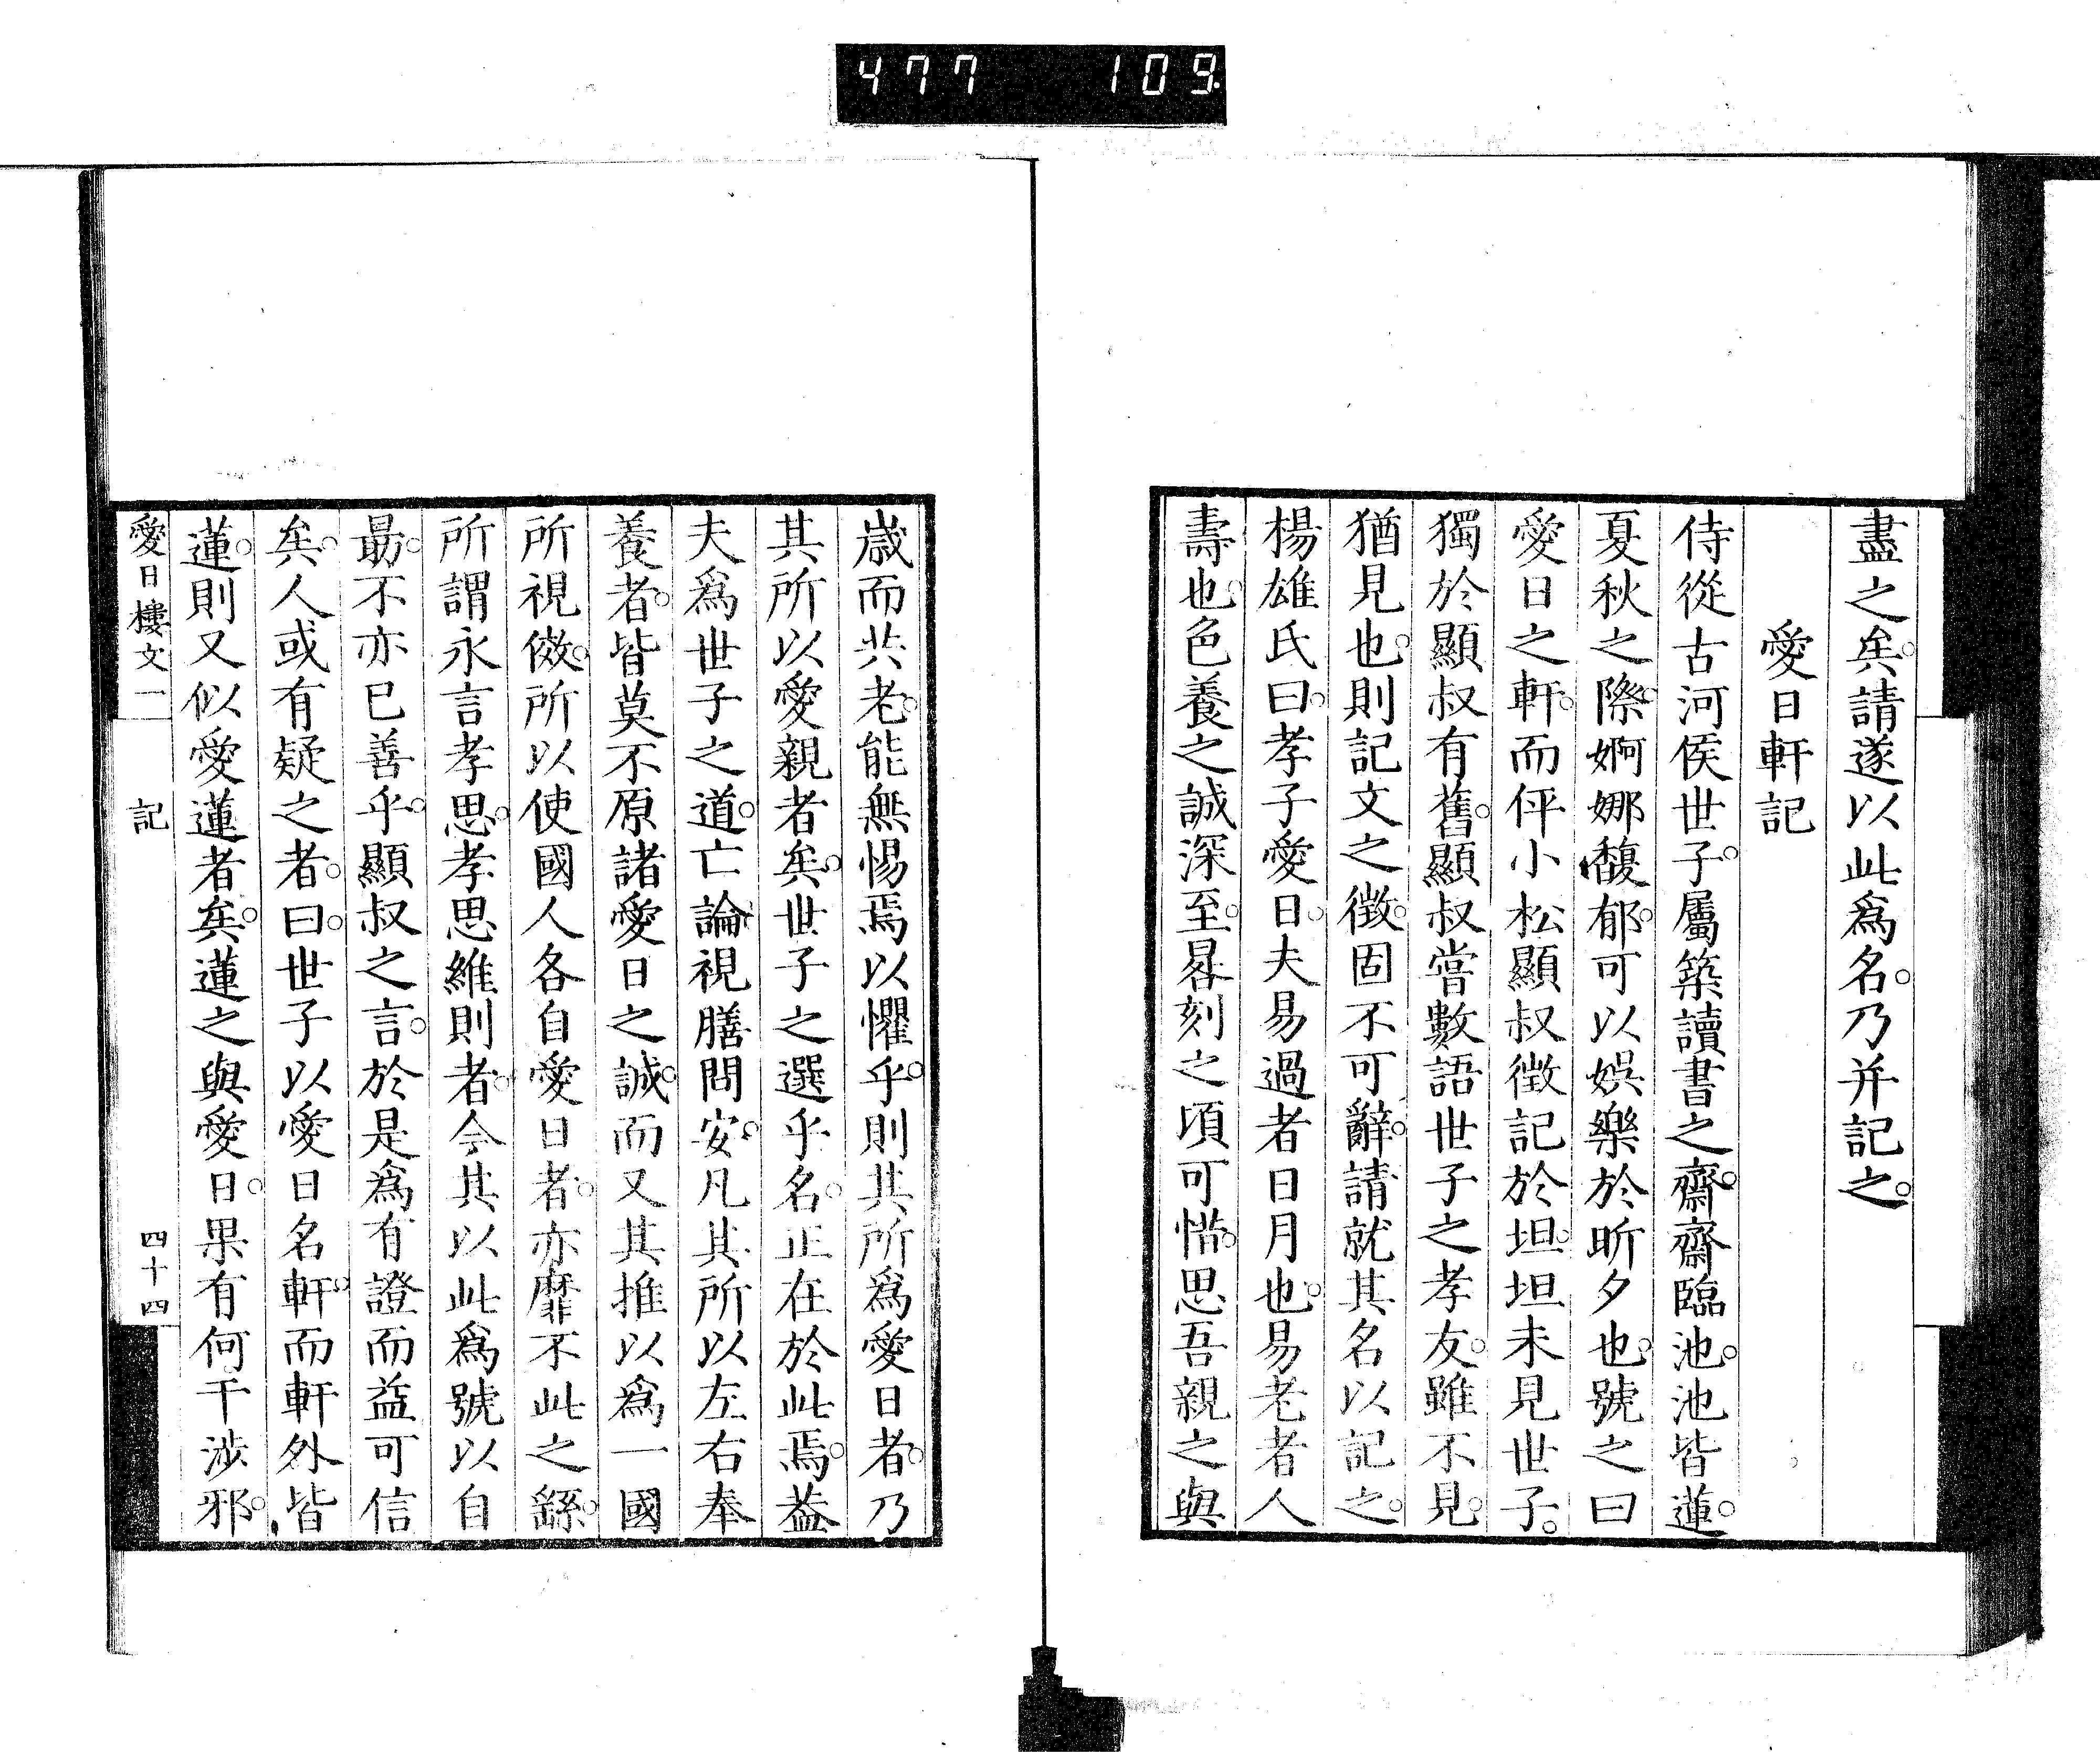 477 109.
盡之矣。請遂以此爲名。乃并記之。
愛日軒記
侍從古河侯世子。屬築讀書之齋。齋臨池。池皆蓮。
夏秋之際。婀娜馥郁。可以娯樂於昕夕也。號之曰
愛日之軒。而伻小松顯叔徴記於坦。坦未見世子。
獨於顯叔有舊。顯叔嘗數語世子之孝友。雖不見。
猶見也。則記文之徴。固不可辭。請就其名以記之。
楊雄氏曰。孝子愛日。夫易過者日月也。易老者人
壽也。色養之誠深至。晷刻之頃可惜。思吾親之與
歳而共老。能無惕焉以懼乎。則其所爲愛日者。乃
其所以愛親者矣。世子之選乎名。正在於此焉。葢
夫爲世子之道。亡論視膳問安。凡其所以左右奉
養者。皆莫不原諸愛日之誠。而又其推以爲一國
所視傚。所以使國人各自愛日者。亦靡不此之繇。
所謂永言孝思。孝思維則者。今其以此爲號以自
勗。不亦已善乎。顯叔之言。於是爲有證而益可信
矣。人或有疑之者。曰。世子以愛日名軒。而軒外皆
蓮。則又似愛蓮者矣。蓮之與愛日。果有何干涉邪。
愛日樓文一 記 四十四